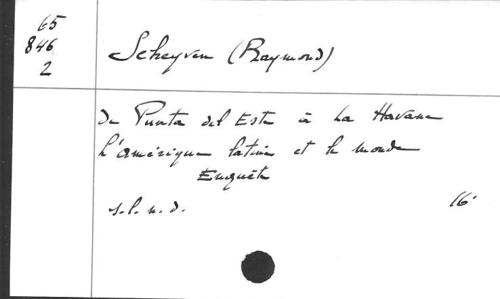 65
846
2
Scheyven (Raymond)
de Punta del Este à La Havane
L'amérique latine et le monde
Enquête
s.l.n.d.
16°